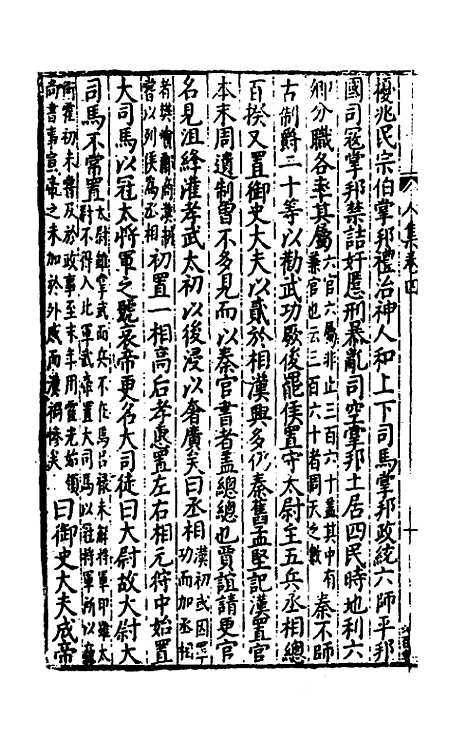 擾兆民宗伯掌邦禮治神人和上下司馬掌邦政統六師平邦
國司寇掌邦禁詰奸慝刑暴亂司空掌邦土居四民時地利六
卿分職各率其屬六官六屬非止三百六十蓋其中有兼官也云三百六十者周天之數秦不師
古制爵二十等以勸武功厥後罷侯置守太尉主五兵丞相總
百揆又置御史大夫以貳於相漢興多仍秦舊孟堅記漢置官
本末周遺制曾不多見而以秦官書者蓋總總也賈誼請更官
名見沮絳灌孝武太初以後浸以奢廣矣曰丞相漢初或因功而加丞相
者樊噲酈商漢朝嘗以列侯為丞相初置一相高后孝惠置左右相元狩中始置
大司馬以冠大將軍之號哀帝更名大司徒曰大尉故大尉大
司馬不常置太尉雖掌武而兵不在焉呂祿未解將軍印雖太尉不得入北軍武帝置大司馬以冠將軍所以寵
衛霍初未嘗及於政事至末年用霍光始領尚書事宣帝之末加於外戚而漢禍慘矣曰御史大夫成帝
人集卷四